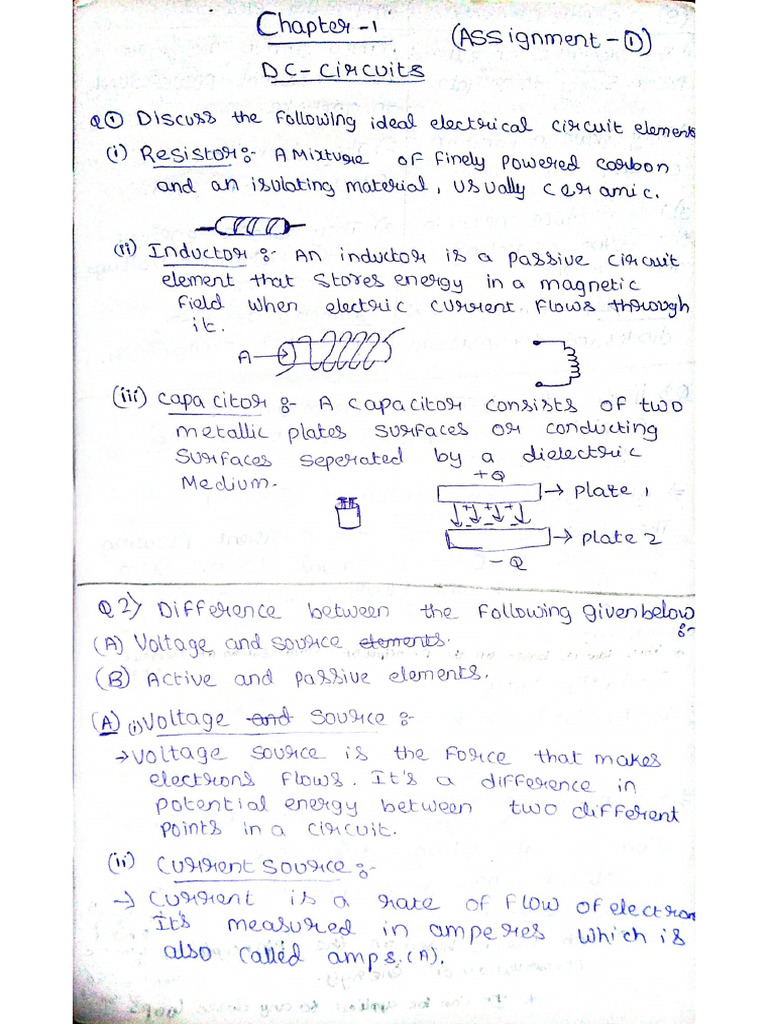 Chapter-1
(ASSignment-①)
DC-Circuits
Q① Discuss the following ideal electrical circuit elements
(i) Resistor:- A Mixture of finely powered carbon
and an isulating material, usually ceramic.
(ii) Inductor:- An inductor is a passive circuit
element that stores energy in a magnetic
field when electric current flows through
it.
A
(iii) Capacitor:- A capacitor consists of two
metallic plates surfaces or conducting
surfaces seperated by a dielectric
Medium.
+Q
→ plate 1
+ + + +
- - - -
→ plate 2
-Q
Q2) Difference between the following given below:-
(A) Voltage and source elements.
(B) Active and passive elements.
(A) (i) Voltage and source:-
→ voltage source is the force that makes
electrons flows. It's a difference in
potential energy between two different
points in a circuit.
(ii) Current source:-
→ current is a rate of flow of electron
It's measured in amperes which is
also called amps.(A).